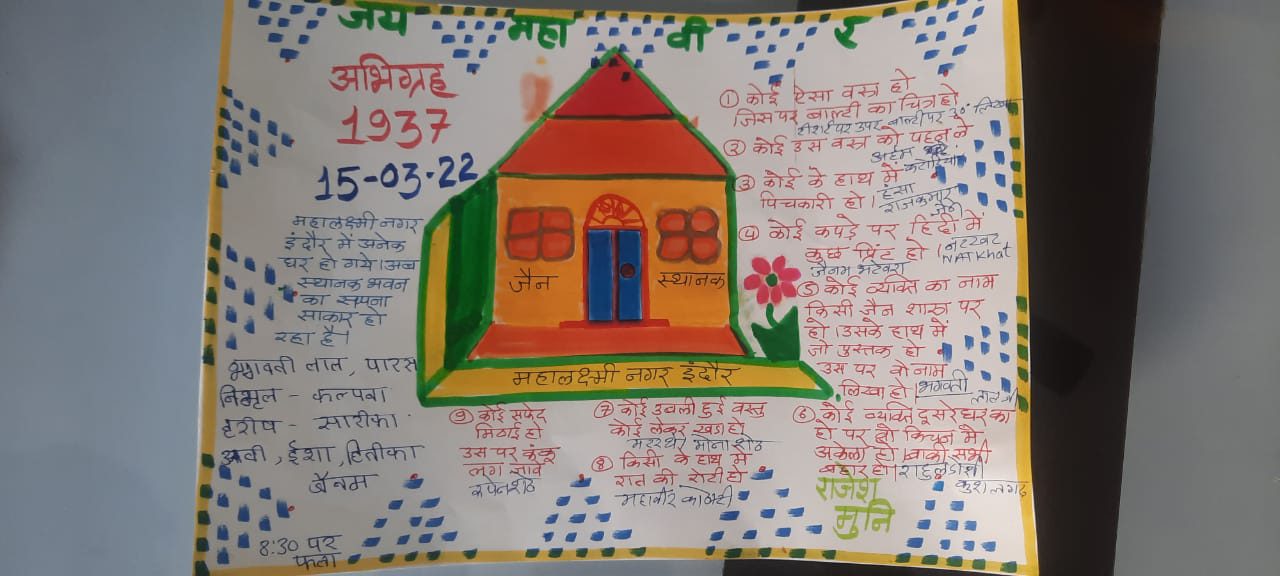 जय महा वी र
अभिग्रह
1937
15-03-22
महालक्ष्मी नगर
इंदौर में अनेक
घर हो गये। अब
स्थानक भवन
का सपना
साकार हो
रहा है।
भगवती लाल, पारस
निर्मल - कल्पना
हरीष - सारीका
अवी, ईशा, हितीका
जैनम
8:30 पर
फला
जैन स्थानक
महालक्ष्मी नगर इंदौर
① कोई ऐसा वस्त्र हो
जिस पर बाल्टी का चित्र हो
टीशर्ट पर उपर बाल्टी पर
② कोई उस वस्त्र को पहने
अर्हम कटारिया
③ कोई के हाथ में
पिचकारी हो।
हंसा
राजकुमार
जैन
④ कोई कपड़े पर हिंदी में
कुछ प्रिंट हो।
नटखट
NATKhat
जैनम भटेवरा
⑤ कोई व्यक्ति का नाम
किसी जैन शास्त्र पर
हो। उसके हाथ में
जो पुस्तक हो
उस पर वो नाम
लिखा हो।
भगवती
लाल जी
⑥ कोई व्यक्ति दूसरे घर का
हो पर वो किचन में
अकेला हो। बाकी सभी
बहार हो।
राहुल
कुशलगढ़
⑦ कोई उबली हुई वस्तु
कोई लेकर खडा हो
मटर थे। मोना शेठ
⑧ किसी के हाथ में
रात की रोटी हो
महावीर
⑨ कोई सफेद
मिठाई हो
उस पर कंकू
लग जावे
राजेश
मुनि